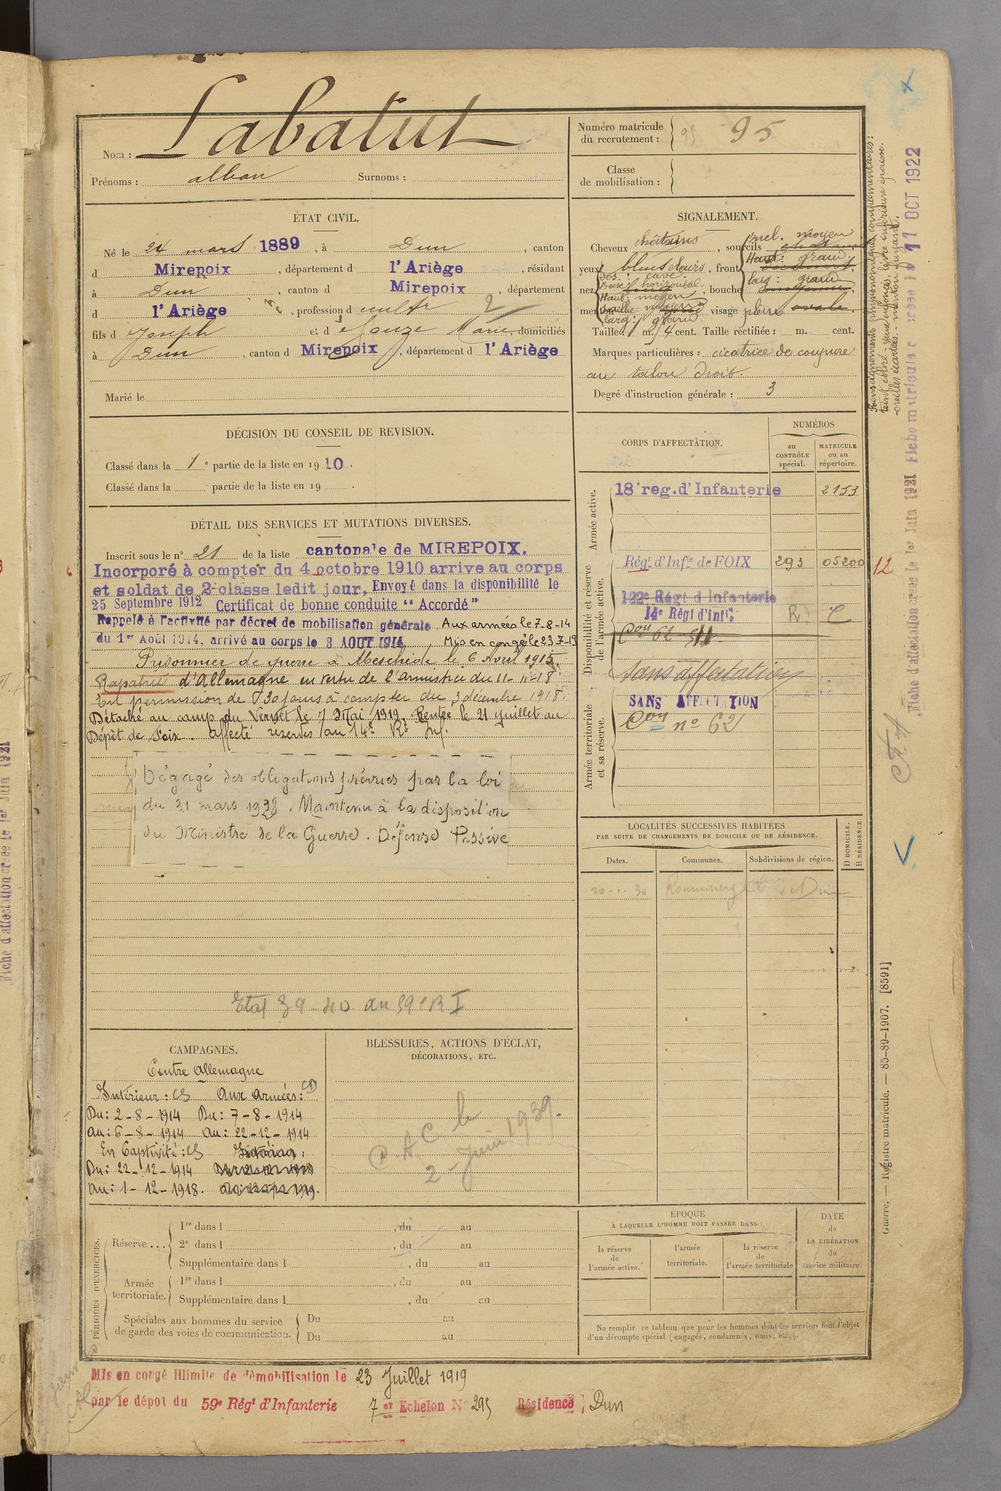 Nom : Labatut
Prénoms : alban Surnoms :
Numéro matricule du recrutement : 95
Classe de mobilisation :
ÉTAT CIVIL.
Né le 24 mars 1889, à Dun, canton
d Mirepoix, département d l'Ariège, résidant
à Dun, canton d Mirepoix, département
d l'Ariège, profession d cultr
fils d Joseph et d Marie domiciliés
à Dun, canton d Mirepoix, département d l'Ariège
Marié le
SIGNALEMENT.
Cheveux châtains, sourcils
yeux bleus clairs, front
nez, bouche
visage pleins ovale
Taille : 1 m. 74 cent. Taille rectifiée : m. cent.
Marques particulières : cicatrice de coupure
au talon droit.
Degré d'instruction générale : 3
DÉCISION DU CONSEIL DE REVISION.
Classé dans la 1e partie de la liste en 1910.
Classé dans la partie de la liste en 19 .
DÉTAIL DES SERVICES ET MUTATIONS DIVERSES.
Inscrit sous le n° 21 de la liste cantonale de MIREPOIX.
Incorporé à compter du 4 octobre 1910 arrive au corps
et soldat de 2e classe ledit jour, Envoyé dans la disponibilité le
25 Septembre 1912 Certificat de bonne conduite "Accordé"
Rappelé à l'activité par décret de mobilisation générale Aux armées le 7-8-14
du 1er Août 1914, arrivé au corps le 3 AOUT 1914 Mis en congé le 23-7-19
Prisonnier de guerre à Meschede le 6 Avril 1915.
Rapatrié d'Allemagne en vertu de l'armistice du 11-11-18
En permission de 30 jours à compter du 3 décembre 1918.
Détaché au camp du Vernet le 7 Mai 1919. Rentré le 21 juillet au
Dépôt de Foix. affecté réserve au 14e Rt Inf.
Dégagé des obligations prévues par la loi
du 31 mars 1928. Maintenu à la disposition
du Ministre de la Guerre. Défense Passive
CORPS D'AFFECTATION.
NUMÉROS
au CONTRÔLE spécial.
MATRICULE ou au répertoire.
Armée active.
18e reg. d'Infanterie 2153
Disponibilité et réserve de l'armée active.
Régt d'Infie de FOIX 293 05200 12
122e Régt d'Infanterie
14e Régt d'Infie
Sans affectation
Armée territoriale et sa réserve.
SANS AFFECTATION
Con n° 62
LOCALITÉS SUCCESSIVES HABITÉES
PAR SUITE DE CHANGEMENTS DE DOMICILE OU DE RÉSIDENCE.
Dates. Communes. Subdivisions de région. D DOMICILE. R RÉSIDENCE.
CAMPAGNES.
Contre Allemagne
Intérieur : CS Aux Armées : CD
Du : 2-8-1914 Du : 7-8-1914
au : 6-8-1914 au : 22-12-1914
En Captivité : CS Intérieur :
Du : 22-12-1914
au : 1-12-1918.
BLESSURES, ACTIONS D'ÉCLAT,
DÉCORATIONS, ETC.
P.A.C le
2 Juin 1939.
PÉRIODES D'EXERCICES.
Réserve... 1re dans l , du au
2e dans l , du au
Supplémentaire dans l , du au
Armée territoriale. 1re dans l , du au
Supplémentaire dans l , du au
Spéciales aux hommes du service de garde des voies de communication. Du au
Du au
ÉPOQUE
À LAQUELLE L'HOMME DOIT PASSER DANS
la réserve de l'armée active.
l'armée territoriale.
la réserve de l'armée territoriale
DATE de LA LIBÉRATION du service militaire.
Mis en congé illimité de démobilisation le 23 Juillet 1919
par le dépôt du 59e Régt d'Infanterie 7 er Echelon N° 295 Résidence : Dun
Fiche d'affectation créée le 1er Juin 1921 Fiche matricule créée le 11 OCT 1922
Guerre. — Registre matricule. — 85-89-1907. [8591]
Fiche d'affectation créée le 1er Juin 1921